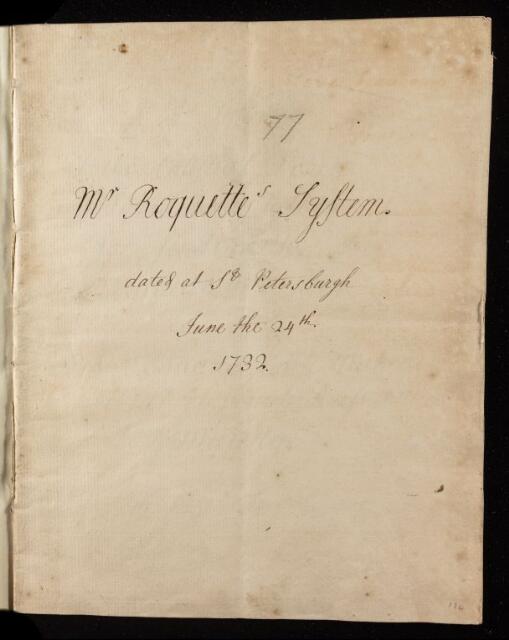 77
Mr Roquette's System.
dated at St Petersburgh
June the 24th.
1732.